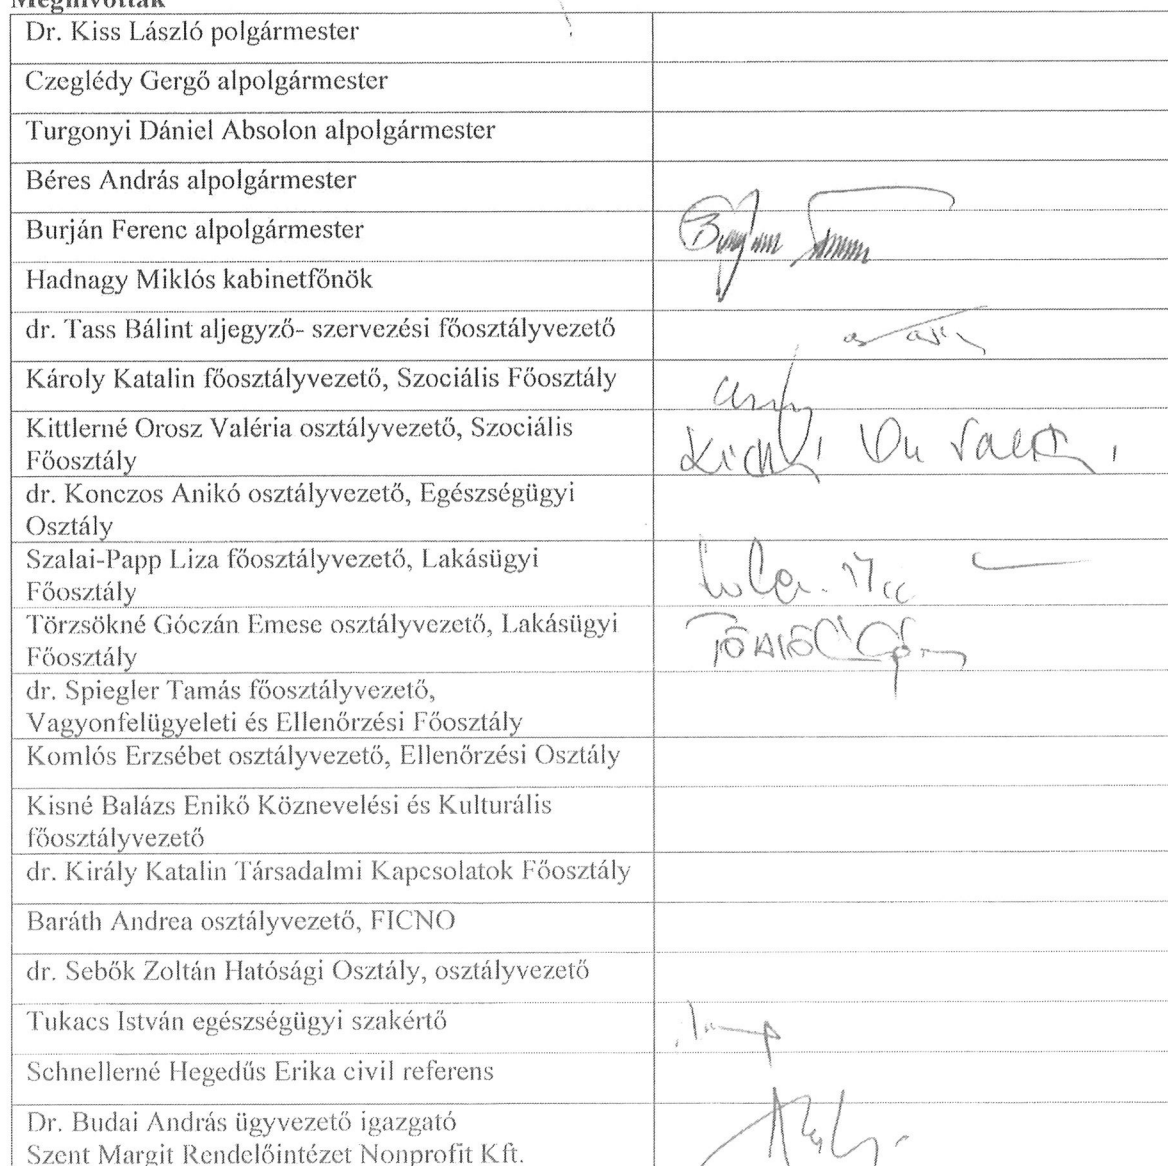 Meghívottak
Dr. Kiss László polgármester
Czeglédy Gergő alpolgármester
Turgonyi Dániel Absolon alpolgármester
Béres András alpolgármester
Burján Ferenc alpolgármester
Hadnagy Miklós kabinetfőnök
dr. Tass Bálint aljegyző- szervezési főosztályvezető
Károly Katalin főosztályvezető, Szociális Főosztály
Kittlerné Orosz Valéria osztályvezető, Szociális
Főosztály
dr. Konczos Anikó osztályvezető, Egészségügyi
Osztály
Szalai-Papp Liza főosztályvezető, Lakásügyi
Főosztály
Törzsökné Góczán Emese osztályvezető, Lakásügyi
Főosztály
dr. Spiegler Tamás főosztályvezető,
Vagyonfelügyeleti és Ellenőrzési Főosztály
Komlós Erzsébet osztályvezető, Ellenőrzési Osztály
Kisné Balázs Enikő Köznevelési és Kulturális
főosztályvezető
dr. Király Katalin Társadalmi Kapcsolatok Főosztály
Baráth Andrea osztályvezető, FICNO
dr. Sebők Zoltán Hatósági Osztály, osztályvezető
Tukacs István egészségügyi szakértő
Schnellerné Hegedűs Erika civil referens
Dr. Budai András ügyvezető igazgató
Szent Margit Rendelőintézet Nonprofit Kft.